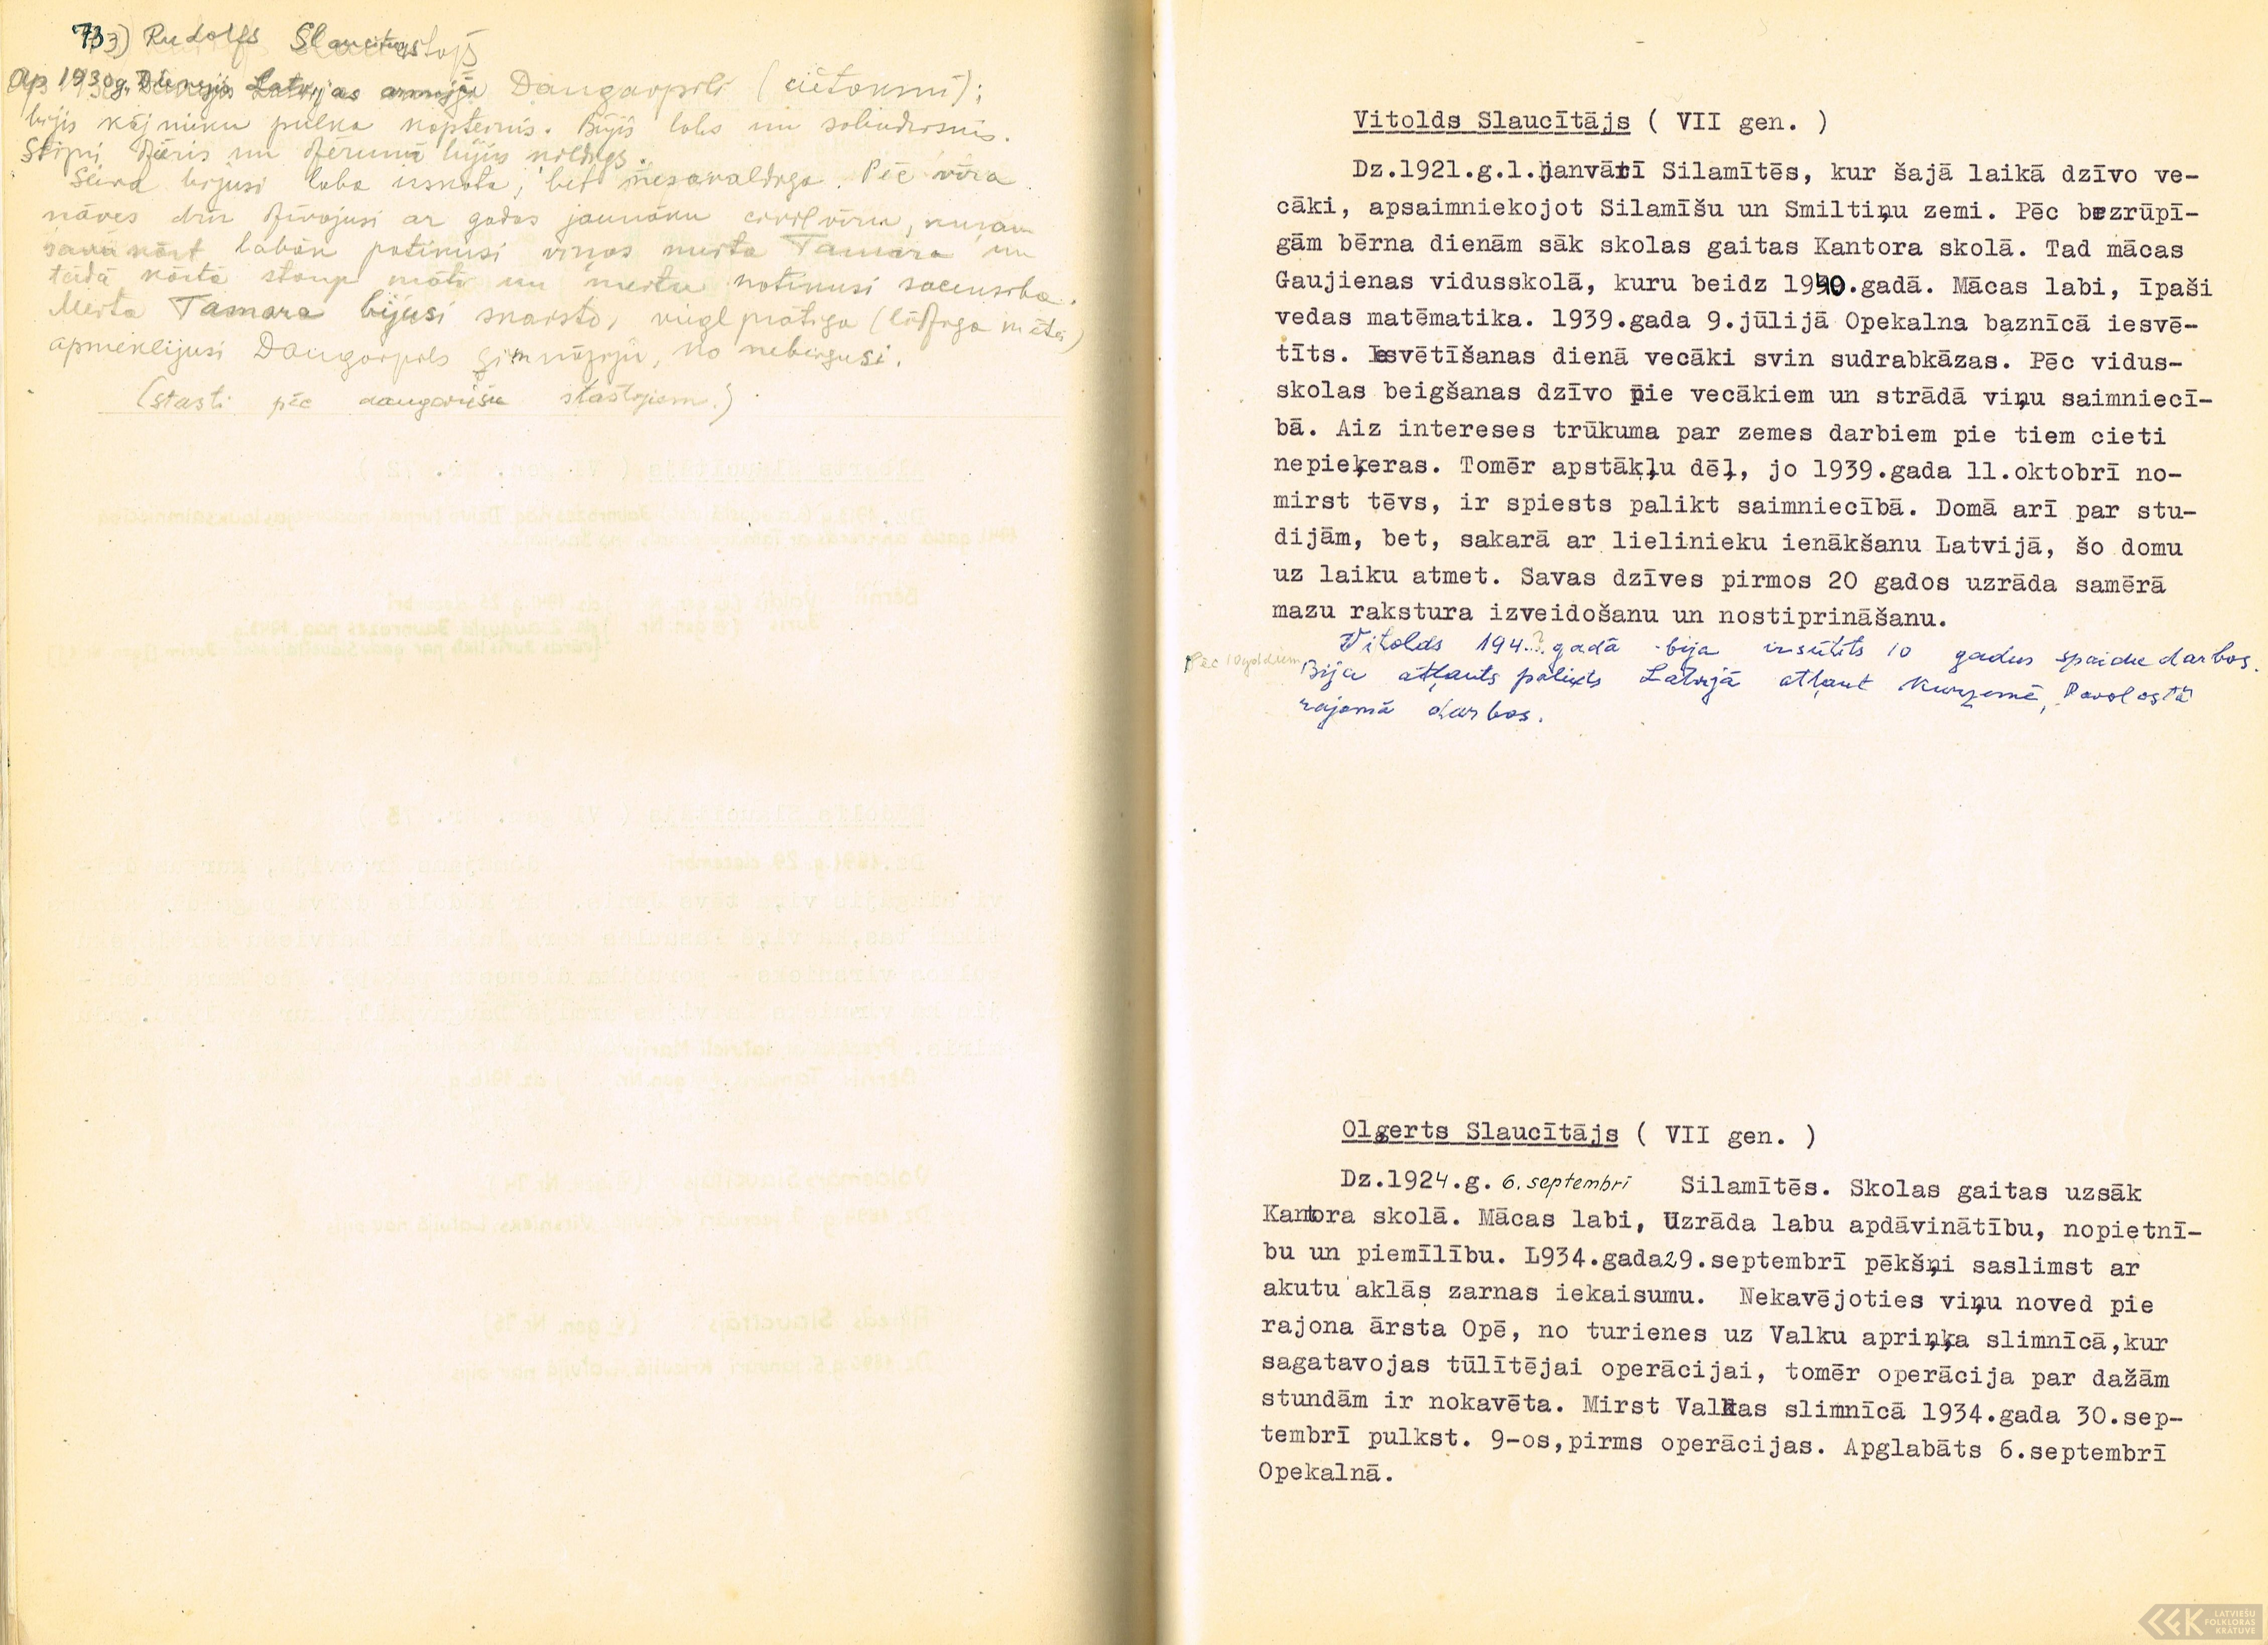 73) Rudolfs Slaucītājs
Ap 1930g. Dienējis Latvijas armijā Daugavpilī (cietoksnī);
bijis kājnieku pulka kapteinis. Bijis labs un sabiedrisks.
Stipri dzēris un dzērumā bijis nelāgs.
Sieva bijusi laba izskata, bet nesavaldīga. Pēc vīra
nāves drīz dzīvojusi ar gados jaunāku civilvīru, kuram
savukārt labāk patikusi viņas meita Tamara un
tādā kārtā starp māti un meitu notikusi sacensība.
Meita Tamara bijusi skaista, vieglprātīga (līdzīga mātei)
apmeklējusi Daugavpils ģimnāziju, to nebeigusi.
(stāsti pēc stāstījiem.)
Vitolds Slaucītājs ( VII gen. )
Dz.1921.g.1.janvārī Silamītēs, kur šajā laikā dzīvo ve-
cāki, apsaimniekojot Silamīšu un Smiltiņu zemi. Pēc bezrūpī-
gām bērna dienām sāk skolas gaitas Kantora skolā. Tad mācas
Gaujienas vidusskolā, kuru beidz 1940.gadā. Mācas labi, īpaši
vedas matēmatika. 1939.gada 9.jūlijā Opekalna baznīcā iesvē-
tīts. Iesvētīšanas dienā vecāki svin sudrabkāzas. Pēc vidus-
skolas beigšanas dzīvo pie vecākiem un strādā viņu saimniecī-
bā. Aiz intereses trūkuma par zemes darbiem pie tiem cieti
nepieķeras. Tomēr apstākļu dēļ, jo 1939.gada 11.oktobrī no-
mirst tēvs, ir spiests palikt saimniecībā. Domā arī par stu-
dijām, bet, sakarā ar lielinieku ienākšanu Latvijā, šo domu
uz laiku atmet. Savas dzīves pirmos 20 gados uzrāda samērā
mazu rakstura izveidošanu un nostiprināšanu.
Vitolds 194.?.gadā bija izsūtīts 10 gadus spaidu darbos.
Pēc 10 gadiem Bija atļauts palikts Latvijā atļaut Kurzemē, Pavilostā
rajonā darbos.
Olgerts Slaucītājs ( VII gen. )
Dz.1924.g. 6.septembrī Silamītēs. Skolas gaitas uzsāk
Kantora skolā. Mācas labi, Uzrāda labu apdāvinātību, nopietnī-
bu un piemīlību. L934.gada29.septembrī pēkšņi saslimst ar
akutu aklās zarnas iekaisumu. Nekavējoties viņu noved pie
rajona ārsta Opē, no turienes uz Valku apriņķa slimnīcā,kur
sagatavojas tūlītējai operācijai, tomēr operācija par dažām
stundām ir nokavēta. Mirst Valkas slimnīcā 1934.gada 30.sep-
tembrī pulkst. 9-os,pirms operācijas. Apglabāts 6.septembrī
Opekalnā.
LATVIEŠU
FOLKLORAS
KRĀTUVE